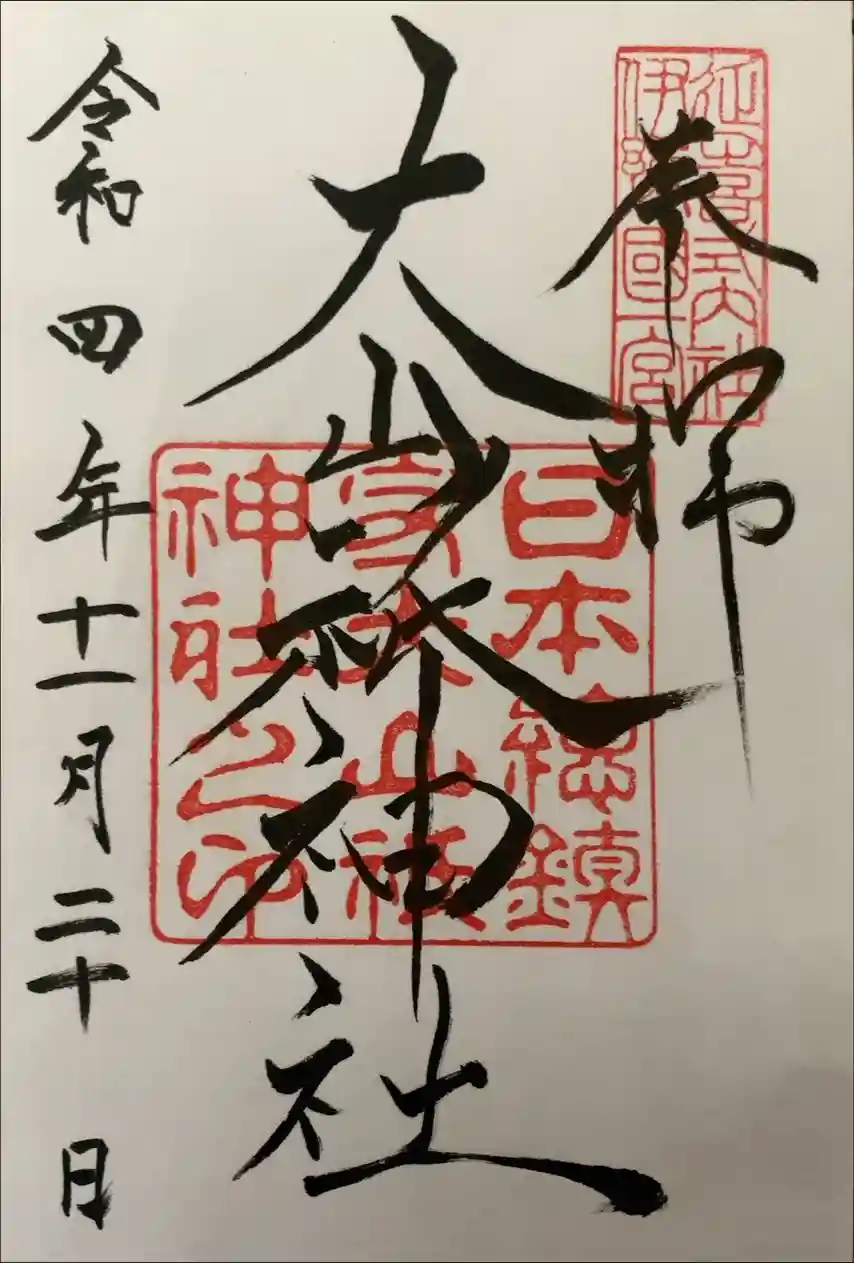 延喜式内社
伊豫國一宮
奉拝
日本總鎮
守大山祇
神社之印
大山祇神社
令和四年十一月二十日